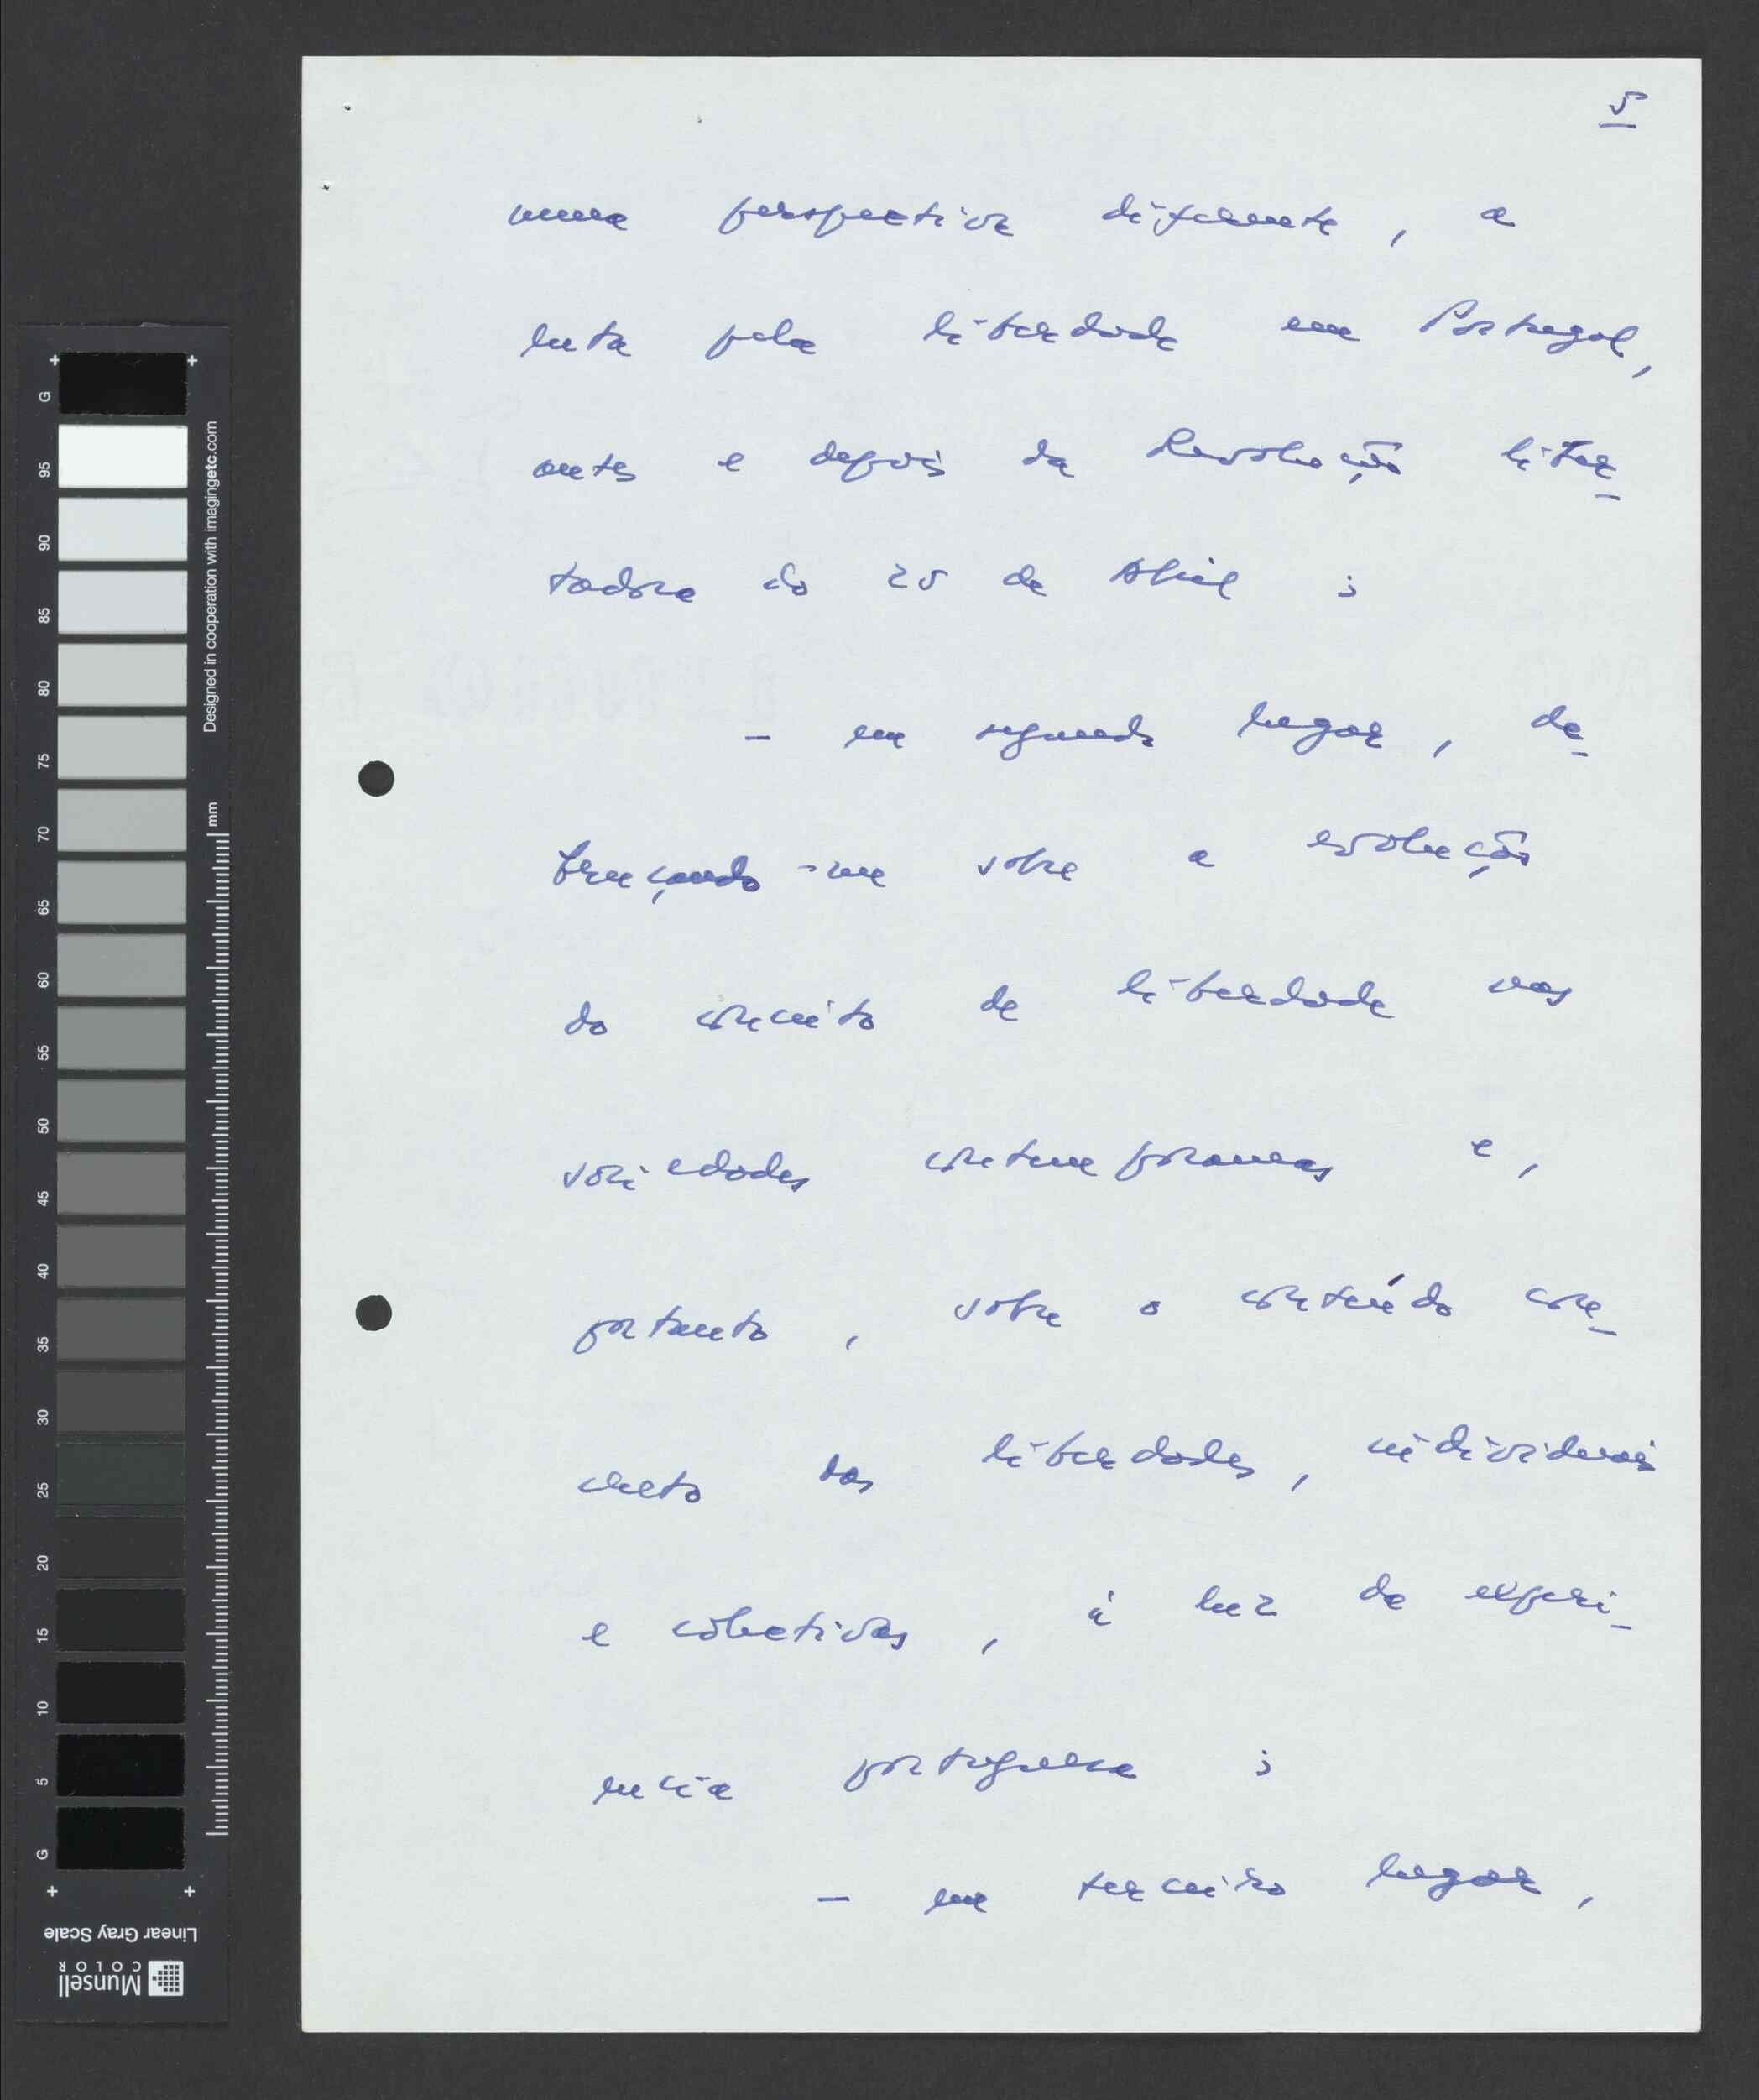 5
numa perspectiva diferente, a
luta pela liberdade em Portugal,
antes e depois da Revolução liber-
tadora do 25 de Abril;
- em segundo lugar, de-
bruçando-me sobre a evolução
do conceito de liberdade nas
sociedades contemporâneas e,
portanto, sobre o conteúdo con-
creto das liberdades, individuais
e colectivas, à luz da experi-
encia portuguesa;
- em terceiro lugar,
G
95
90
85
80
75
70
65
60
55
50
45
40
35
30
25
20
15
10
5
G
mm
Designed in cooperation with imagingetc.com
Linear Gray Scale
Munsell
COLOR